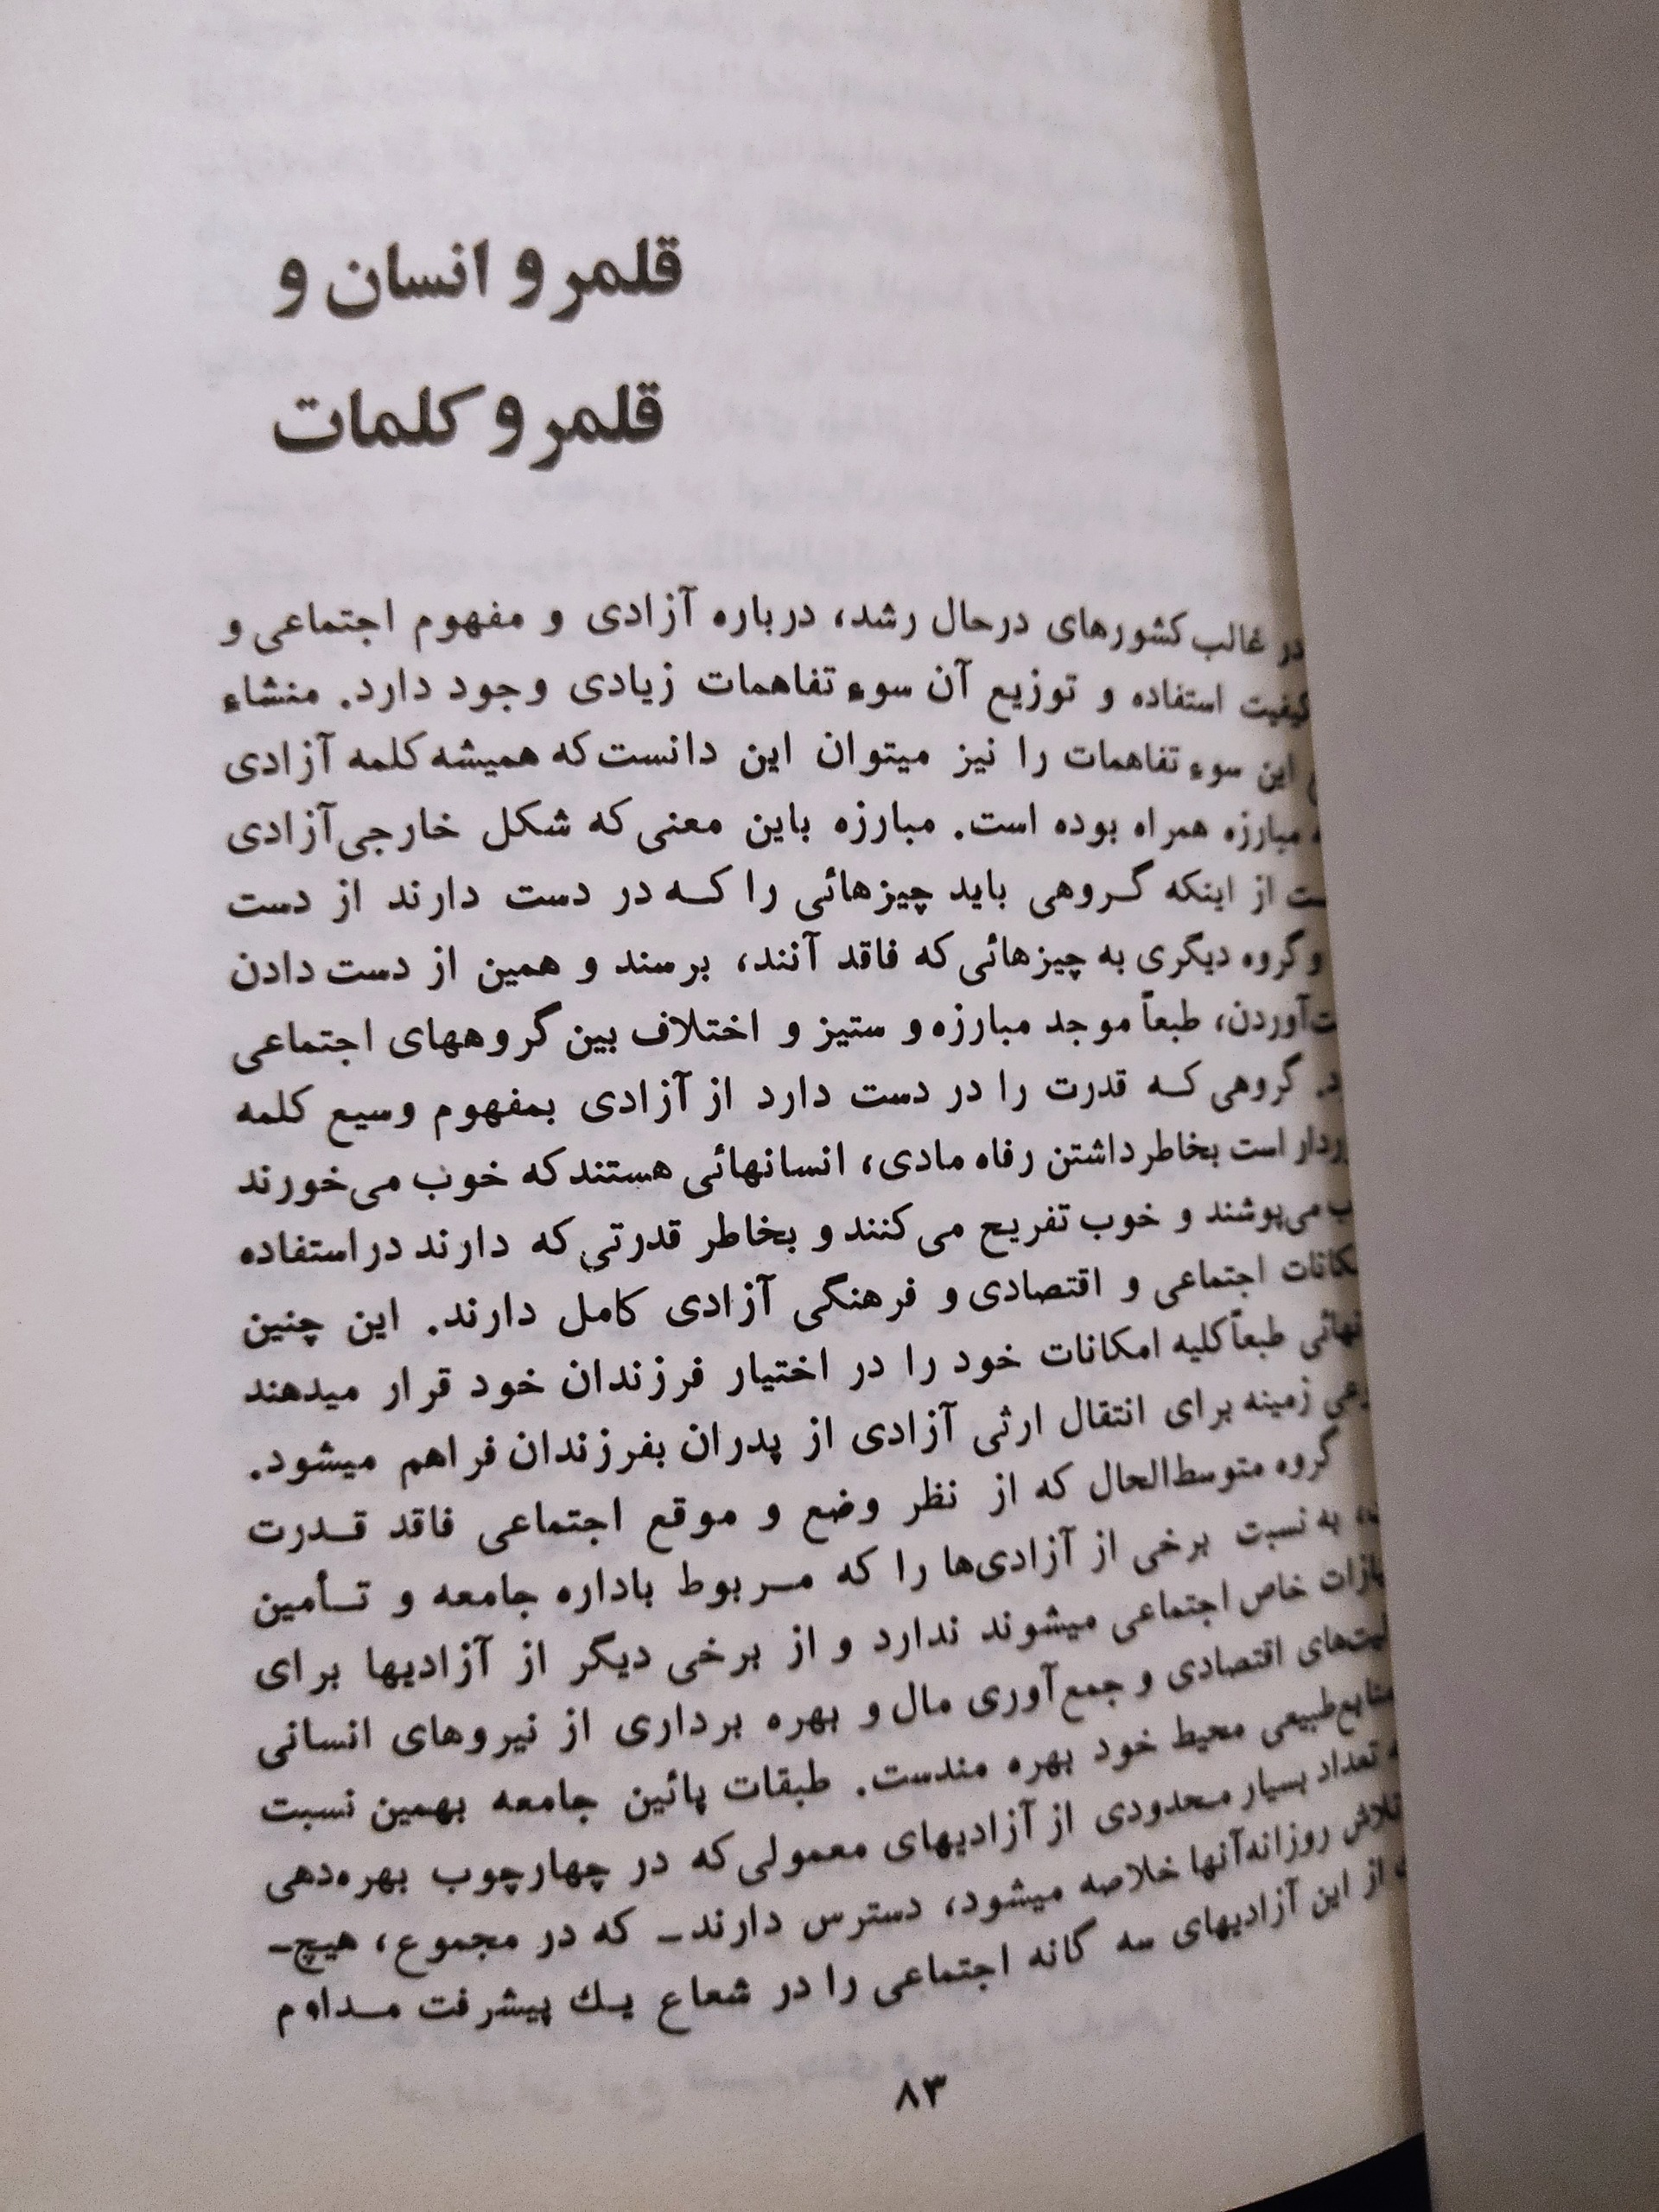 قلمرو انسان و
قلمرو کلمات
در غالب کشورهای درحال رشد، درباره آزادی و مفهوم اجتماعی و
کیفیت استفاده و توزیع آن سوء تفاهمات زیادی وجود دارد. منشاء
این سوء تفاهمات را نیز میتوان این دانست که همیشه کلمه آزادی
مبارزه همراه بوده است. مبارزه باین معنی که شکل خارجی آزادی
از اینکه گروهی باید چیزهائی را که در دست دارند از دست
و گروه دیگری به چیزهائی که فاقد آنند، برسند و همین از دست دادن
طبعاً موجد مبارزه و ستیز و اختلاف بین گروههای اجتماعی
گروهی که قدرت را در دست دارد از آزادی بمفهوم وسیع کلمه
است بخاطر داشتن رفاه مادی، انسانهائی هستند که خوب می‌خورند
می‌پوشند و خوب تفریح می‌کنند و بخاطر قدرتی که دارند در استفاده
اجتماعی و اقتصادی و فرهنگی آزادی کامل دارند. این چنین
طبعاً کلیه امکانات خود را در اختیار فرزندان خود قرار میدهند
زمینه برای انتقال ارثی آزادی از پدران بفرزندان فراهم میشود.
گروه متوسط‌الحال که از نظر وضع و موقع اجتماعی فاقد قدرت
به نسبت برخی از آزادی‌ها را که مربوط باداره جامعه و تأمین
خاص اجتماعی میشوند ندارد و از برخی دیگر از آزادیها برای
اقتصادی و جمع‌آوری مال و بهره برداری از نیروهای انسانی
منابع طبیعی محیط خود بهره مندست. طبقات پائین جامعه بهمین نسبت
تعداد بسیار محدودی از آزادیهای معمولی که در چهارچوب بهره‌دهی
تلاش روزانه آنها خلاصه میشود، دسترس دارند– که در مجموع، هیچ–
از این آزادیهای سه گانه اجتماعی را در شعاع یک پیشرفت مداوم
۸۳